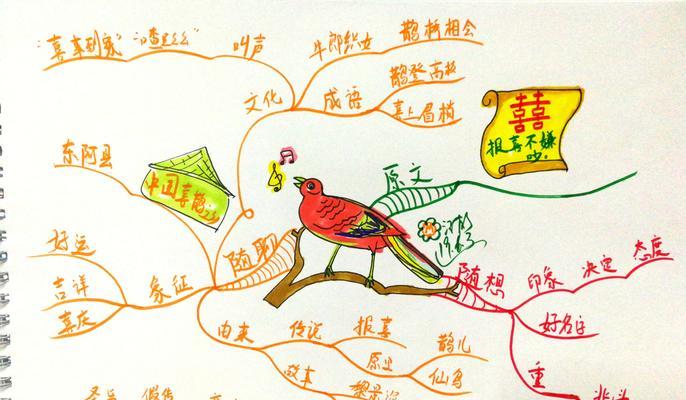 "喜事到家" "喳喳
叫声
牛郎织女
鹊桥相会
文化
成语
鹊登高枝
喜上眉梢
囍
报喜不嫌
吵.
东阿县
中国喜鹊
原文
随聊
好运
吉祥
喜庆
象征
随想
印象
决定
态度
好名字
重
由来
传说
报喜
原型
鹊儿
仙鸟
故事